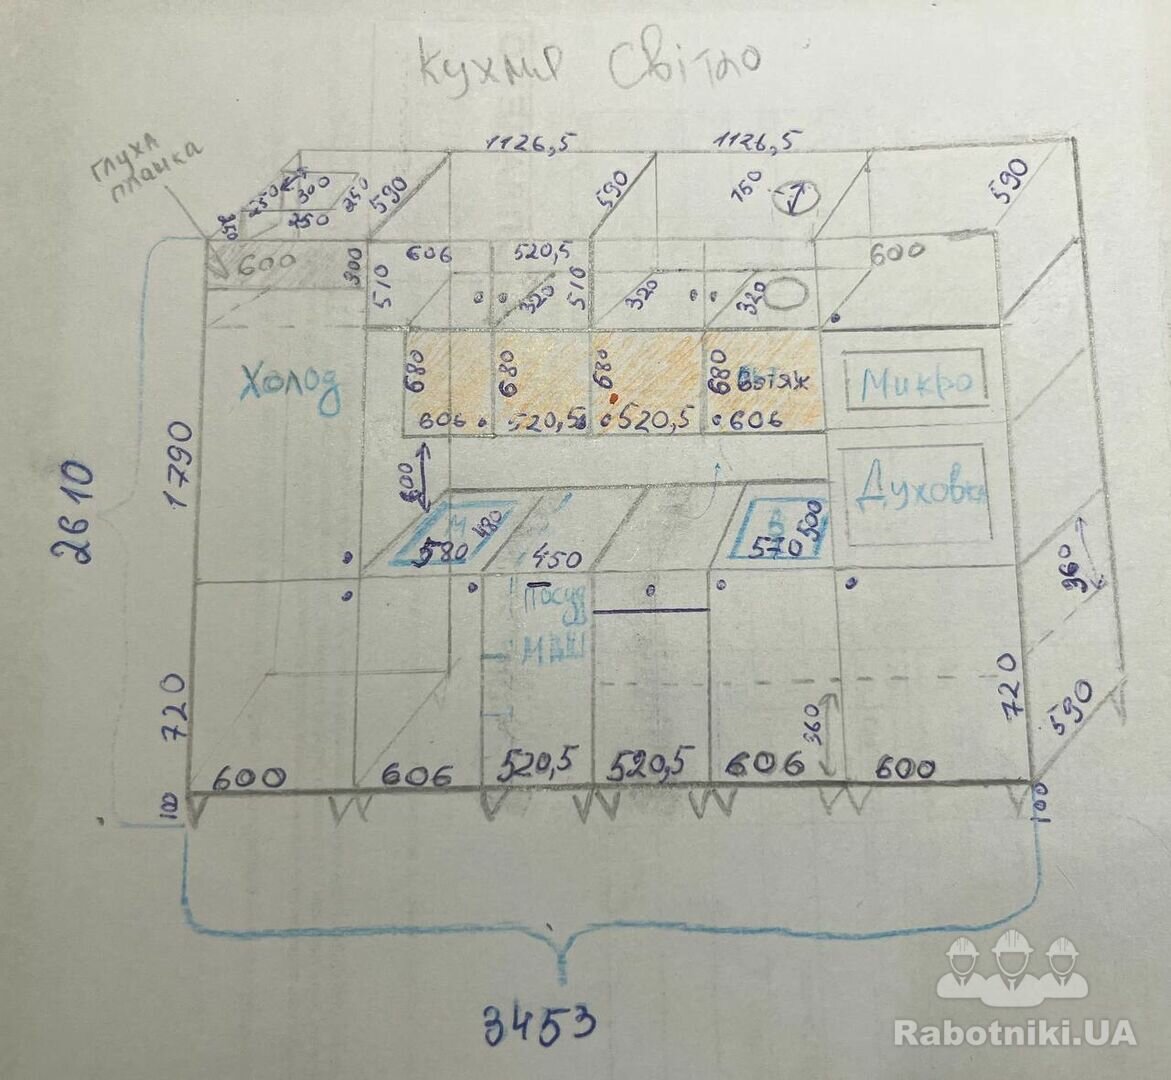 Кухня Світло
глуха
планка
1126,5
1126,5
250
300
250
150
590
590
150
590
600
300
606
520,5
600
510
320
510
320
320
Холод
680
680
680
680
Витяж
Микро
606
520,5
520,5
606
1790
2610
600
Духовка
480
580
450
570
500
360
Посуд
МИШ
720
720
590
360
600
606
520,5
520,5
606
600
100
100
3453
Rabotniki.UA